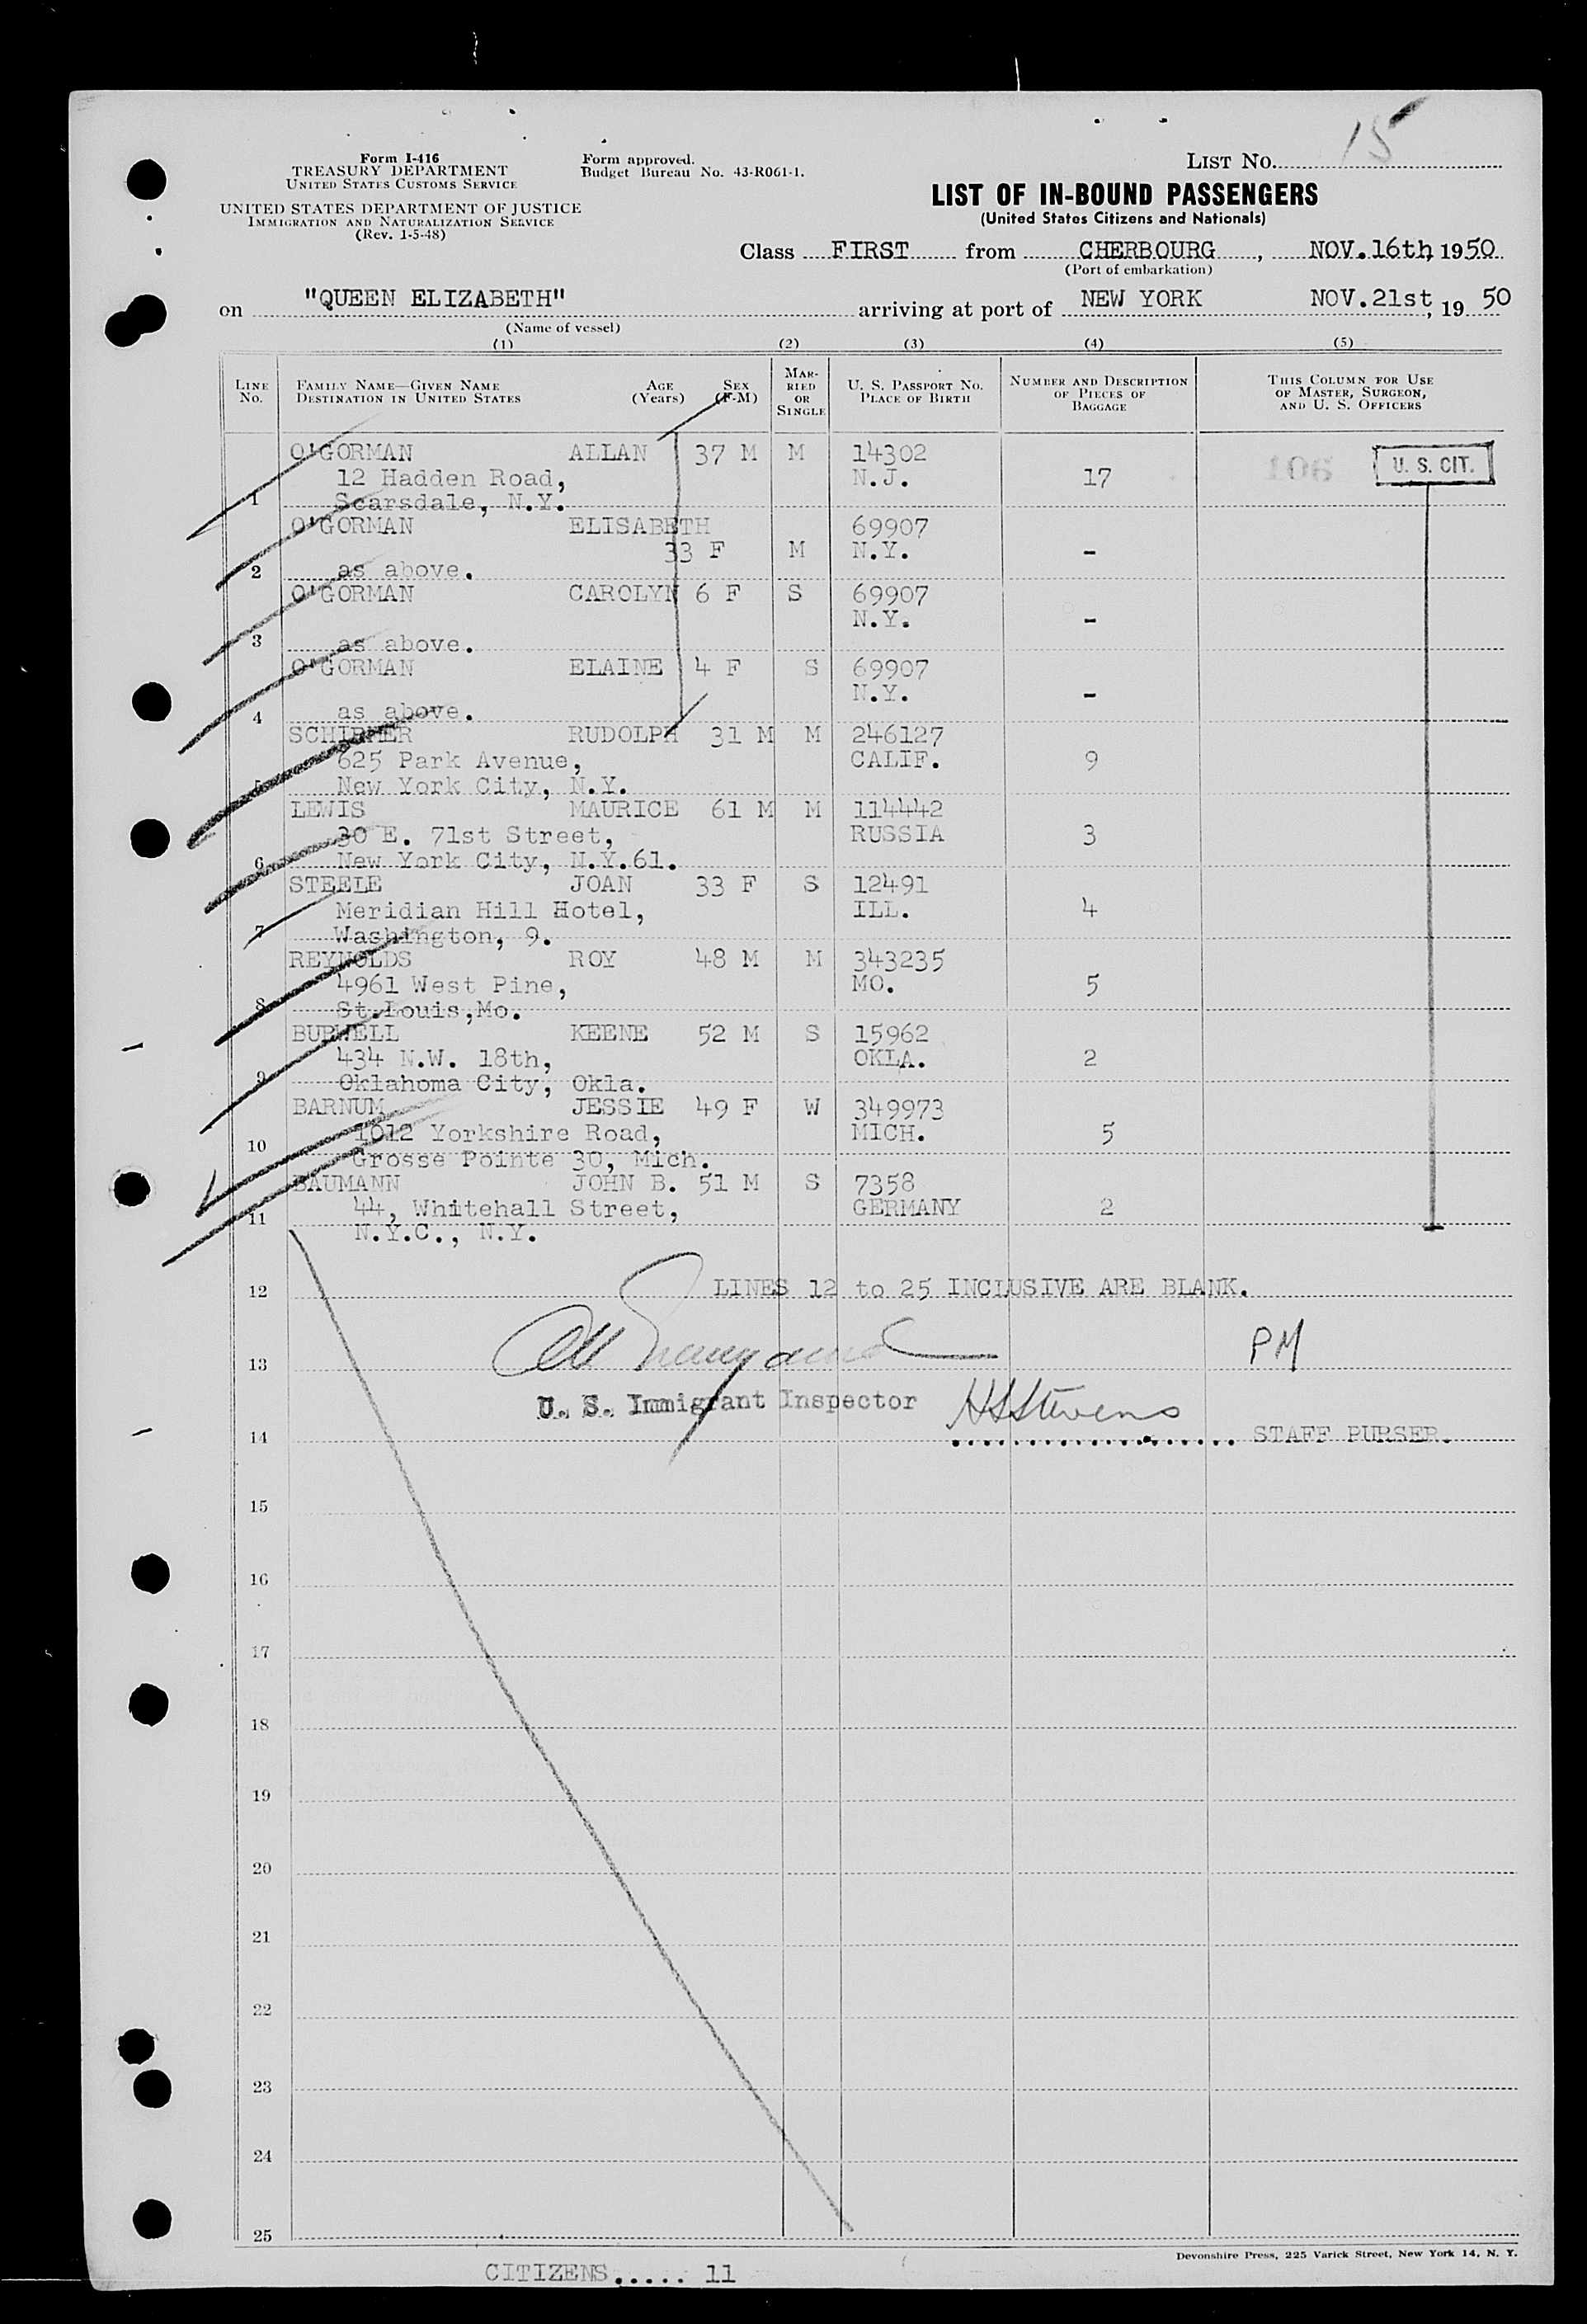 15
Form I-416
TREASURY DEPARTMENT
UNITED STATES CUSTOMS SERVICE
UNITED STATES DEPARTMENT OF JUSTICE
IMMIGRATION AND NATURALIZATION SERVICE
(Rev. 1-5-48)
Form approved.
Budget Bureau No. 43-R061-1.
LIST No.
LIST OF IN-BOUND PASSENGERS
(United States Citizens and Nationals)
Class FIRST from CHERBOURG, NOV.16th, 1950
(Port of embarkation)
on "QUEEN ELIZABETH" arriving at port of NEW YORK NOV.21st, 19 50
(Name of vessel)
(1) (2) (3) (4) (5)
LINE No. FAMILY NAME—GIVEN NAME DESTINATION IN UNITED STATES AGE (Years) SEX (F-M) MARRIED OR SINGLE U. S. PASSPORT NO. PLACE OF BIRTH NUMBER AND DESCRIPTION OF PIECES OF BAGGAGE THIS COLUMN FOR USE OF MASTER, SURGEON, AND U. S. OFFICERS
O'GORMAN ALLAN 37 M M 14302 106 U. S. CIT.
12 Hadden Road, N.J. 17
1 Scarsdale, N.Y.
O'GORMAN ELISABETH 69907
33 F M N.Y. -
2 as above.
O'GORMAN CAROLYN 6 F S 69907
N.Y. -
3 as above.
O'GORMAN ELAINE 4 F S 69907
N.Y. -
4 as above.
SCHIRMER RUDOLPH 31 M M 246127
625 Park Avenue, CALIF. 9
5 New York City, N.Y.
LEWIS MAURICE 61 M M 114442
30 E. 71st Street, RUSSIA 3
6 New York City, N.Y.61.
STEELE JOAN 33 F S 12491
Meridian Hill Hotel, ILL. 4
7 Washington, 9.
REYNOLDS ROY 48 M M 343235
4961 West Pine, MO. 5
8 St.Louis,Mo.
BURWELL KEENE 52 M S 15962
434 N.W. 18th, OKLA. 2
9 Oklahoma City, Okla.
BARNUM JESSIE 49 F W 349973
1012 Yorkshire Road, MICH. 5
10 Grosse Pointe 30, Mich.
BAUMANN JOHN B. 51 M S 7358
44, Whitehall Street, GERMANY 2
11 N.Y.C., N.Y.
12 LINES 12 to 25 INCLUSIVE ARE BLANK.
13 PM
U. S. Immigrant Inspector HSStevens
14 STAFF PURSER.
15
16
17
18
19
20
21
22
23
24
25
Devonshire Press, 225 Varick Street, New York 14, N. Y.
CITIZENS..... 11